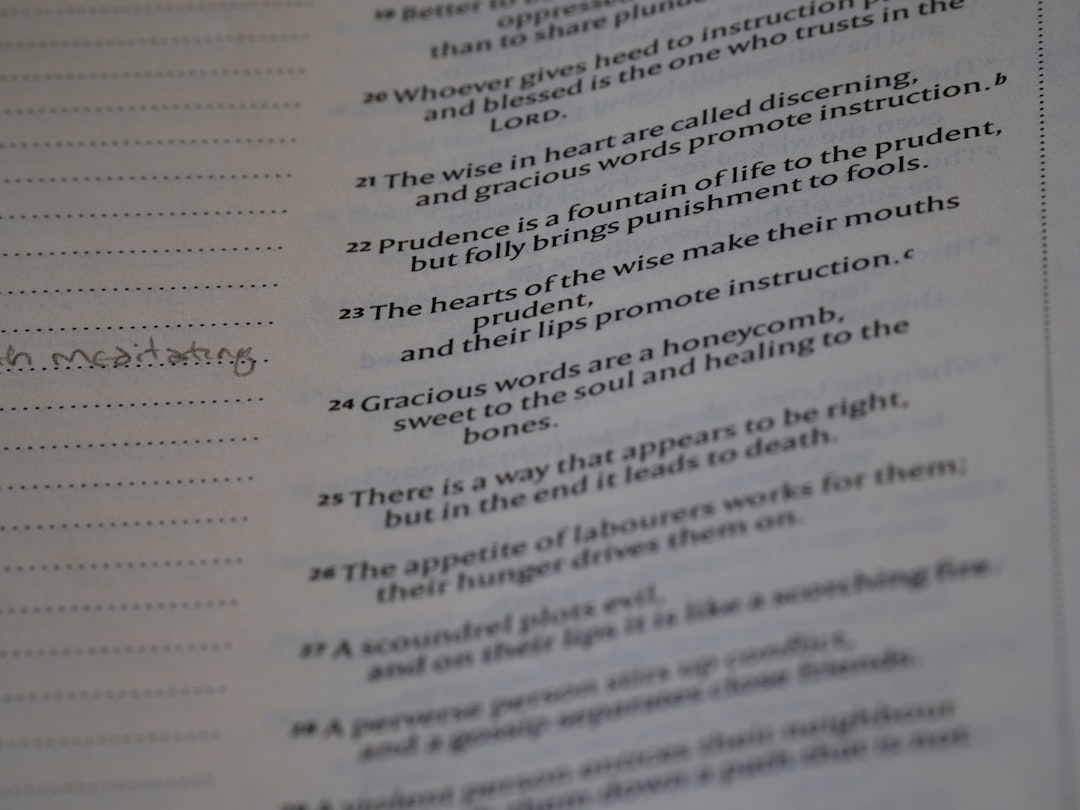 19 Better to be
oppressed
than to share plunder
20 Whoever gives heed to instruction
and blessed is the one who trusts in the
LORD.
21 The wise in heart are called discerning,
and gracious words promote instruction.b
22 Prudence is a fountain of life to the prudent,
but folly brings punishment to fools.
23 The hearts of the wise make their mouths
prudent,
and their lips promote instruction.c
meditating
24 Gracious words are a honeycomb,
sweet to the soul and healing to the
bones.
25 There is a way that appears to be right,
but in the end it leads to death.
26 The appetite of labourers works for them;
their hunger drives them on.
27 A scoundrel plots evil,
and on their lips it is like a scorching fire.
28 A perverse person stirs up conflict,
and a gossip separates close friends.
29 A violent person entices their neighbour
them down a path that is not